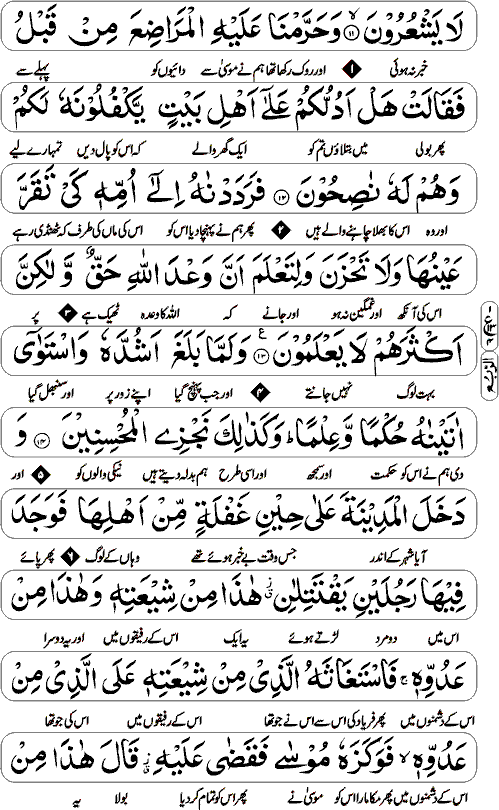 لَا يَشْعُرُوْنَ ۙ۱۱ وَحَرَّمْنَا عَلَيْهِ الْمَرَاضِعَ مِنْ قَبْلُ
خبر نہ ہوئی ۱ اور روک رکھا تھا ہم نے موسیٰ سے دائیوں کو پہلے سے
فَقَالَتْ هَلْ اَدُلُّكُمْ عَلٰٓى اَهْلِ بَيْتٍ يَّكْفُلُوْنَهٗ لَكُمْ
پھر بولی میں بتلاؤں تم کو ایک گھر والے کہ اس کو پال دیں تمہارے لیے
وَهُمْ لَهٗ نٰصِحُوْنَ ۱۲ فَرَدَدْنٰهُ اِلٰٓى اُمِّهٖ كَىْ تَقَرَّ
اور وہ اس کا بھلا چاہنے والے ہیں ۲ پھر ہم نے پہنچا دیا اس کو اس کی ماں کی طرف کہ ٹھنڈی رہے
عَيْنُهَا وَلَا تَحْزَنَ وَلِتَعْلَمَ اَنَّ وَعْدَ اللّٰهِ حَقٌّ وَّلٰكِنَّ
اس کی آنکھ اور غمگین نہ ہو اور جانے کہ اللہ کا وعدہ ٹھیک ہے ۳ پر
اَكْثَرَهُمْ لَا يَعْلَمُوْنَ ۧ۱۳ وَلَمَّا بَلَغَ اَشُدَّهٗ وَاسْتَوٰٓى
بہت لوگ نہیں جانتے ۴ اور جب پہنچ گیا اپنے زور پر اور سنبھل گیا
اٰتَيْنٰهُ حُكْمًا وَّعِلْمًا ؕ وَكَذٰلِكَ نَجْزِى الْمُحْسِنِيْنَ ۱۴ وَ
دی ہم نے اس کو حکمت اور سمجھ اور اسی طرح ہم بدلہ دیتے ہیں نیکی والوں کو ۵ اور
دَخَلَ الْمَدِيْنَةَ عَلٰى حِيْنِ غَفْلَةٍ مِّنْ اَهْلِهَا فَوَجَدَ
آیا شہر کے اندر جس وقت بے خبر ہوئے تھے وہاں کے لوگ ۶ پھر پائے
فِيْهَا رَجُلَيْنِ يَقْتَتِلٰنِ ۫ هٰذَا مِنْ شِيْعَتِهٖ وَهٰذَا مِنْ
اس میں دو مرد لڑتے ہوئے یہ ایک اس کے رفیقوں میں اور یہ دوسرا
عَدُوِّهٖ ۚ فَاسْتَغَاثَهُ الَّذِىْ مِنْ شِيْعَتِهٖ عَلَى الَّذِىْ مِنْ
اس کے دشمنوں میں پھر فریاد کی اس سے اس نے جو تھا اس کے رفیقوں میں اس کی جو تھا
عَدُوِّهٖ ۙ فَوَكَزَهٗ مُوْسٰى فَقَضٰى عَلَيْهِ ۫ قَالَ هٰذَا مِنْ
اس کے دشمنوں میں پھر مکا مارا اس کو موسیٰ نے پھر اس کو تمام کر دیا بولا یہ